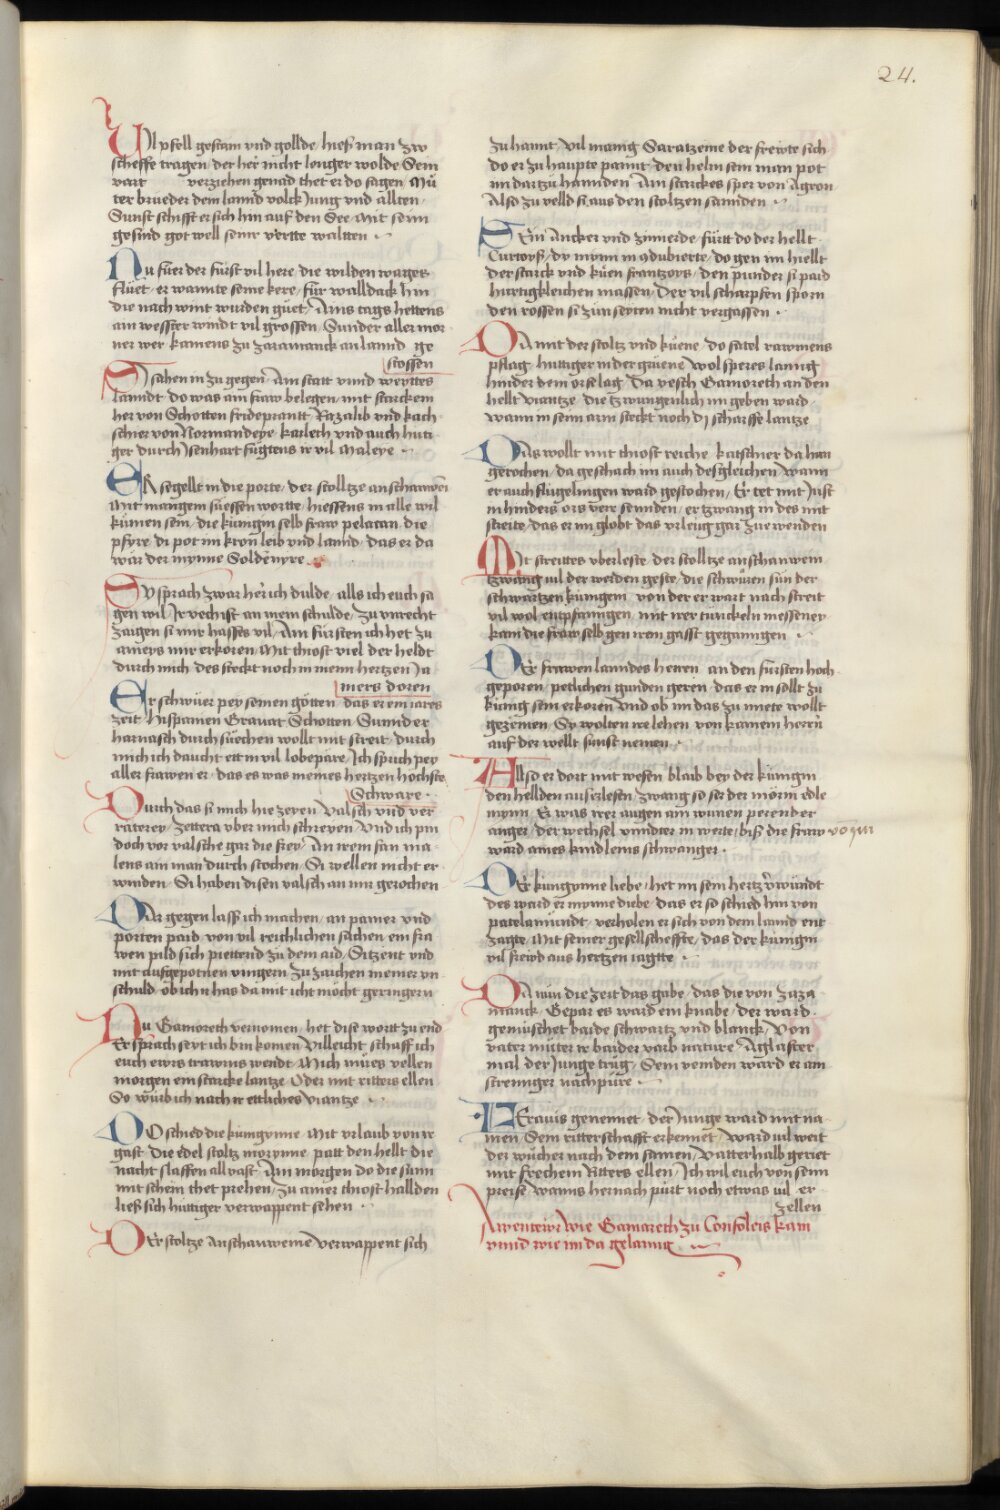 24.
Vil pfell gestain vnd gollde hiesz man zw
scheffe tragen der her nicht lenger wolde Sein
vart verziehen genad thet er do sagen Mu
ter brueder dem lannd volck Jung vnd allten
Sunst schifft er sich hin auf den See mit seim
gesind got well seinr vertte waltten
Nu fuer der furst vil here die wilden wages
fluet er wannte seine kere fur walldack hin
die nach wint wurden guet Ains tags hettens
ain wesster windt vil grossen Sunder aller mor
ner wer kamens zu zaramanck an lannd ge
stossen
Si sahen in zu gegen Am statt vnnd werttes
lanndt do was ain fraw belegen mit starckem
her von Schotten frideprantt Razalib vnd kach
schier von Normandeye karleth vnd auch huti
ger durch Jsenhart fugtens ir vil maleye
Er segellt in die porte der stolltze anschawein
Mit mangem suessen wortte hiessens in alle wil
kumen sein die kunigin selb fraw pelacan die
pfyre di pot im kron leib vnd lannd das er da
war der mynne Soldenyre
Sy sprach zwar her ich dulde alls ich euch sa
gen wil Jr vechst an mein schulde zu vnrecht
zaigen si mir hasses vil Ain fursten ich het zu
ameys mir erkoren Mit thiost viel der heldt
durch mich des steckt noch in meim hertzen Ja
mers doren
Er schwuer pey seinen gotten das er ein iares
zeit hispanien Grauat Schotten Sunnder
harnasch durch suechen wollt mit streit durch
mich ich daucht ett in vil lobepare Jch spruch pey
aller frawen er das es was meines hertzen hochste
Schware
Durch das si mich hie zeren valsch vnd ver
raterey zettera vber mich schreyen Vnd ich pin
doch vor valsche gar die frey An wem san ma
lens ain man durch stochen Si wellen nicht er
winden Si haben disen valsch an mir gerochen
Dar gegen lass ich machen an paner vnd
porten paid von vil reichlichen sachen ein fra
wen pild sich piettend zu dem aid Sitzent vnd
mit aufgepotnen vingern zu zaichen meiner vn
schuld ob ich ir has da mit icht mocht geringern
Nu Gamoreth vernomen het dise wortt zu end
Er sprach seyt ich bin komen villeicht schaff ich
euch ewrs trawrns wendt Mich mues vellen
morgen ein starcke lantze Oder mit ritters ellen
So wurb ich nach ir ettliches viantze
Do schied die kunigynne Mit vrlaub von ir
gast die edel stoltz morynne patt den hellt die
nacht slaffen all vast Am morgen do die sunn
mit schein thet prehen zu ainer thiost hallden
liesz sich huttiger verwappent sehen
Der stoltze Anschauweine verwappent sich
zu hannt vil manig Saratzeine der frewte sich
do er zu haupte pannt den helm sein man pot
im dartzu hannden Ain starckes sper von Agron
Also zu velld si aus den stoltzen sannden
Sein Ancker vnd zimierde furtt do der hellt
Curtoys dy mynn in condubierte do gen im hiellt
der starck vnd kuen frantzoys den punder si paid
hurtigkleichen massen Der vil scharpfen sporn
den rossen si zun seyten nicht vergassen
Da mit der stoltz vnd kuene do satel rawmens
pflag huttiger in der gruene wol speres lanng
hinder dem ors lag Da vesch Gamoreth an den
hellt viantze die tzwungenlich im geben ward
wann in seim arm steckt noch dy scharffe lantze
Das wollt mit thiost reiche katschier da han
gerochen da geschach im auch desgleichen wann
er auch flugelingen ward gestochen Er tet mit Just
in hinders ors verr sennden er tzwang in des mit
streite das er im globt das vrleug gar zue wenden
Mit streittes vberleste der stolltze anschauwein
tzwang vil der werden geste die schwuren sun der
schwartzen kunigein von der er wart nach streit
vil wol entpfanngen mit irer tunckeln messeney
kam die fraw selb gen iren gasst geganngen
Der frawen lanndes herren an den fursten hoch
geporen petlichen gunden geren das er in sollt zu
kunig sein erkoren Vnd ob im das zu miete wollt
gezemen Sy wolten ir lehen von kainem herrn
auf der wellt sunst nemen
Allso er dort mit wesen blaib bey der kunigin
den hellden auserlesen zwang so ser der morin edle
mynn Er was irer augen ain wunen perender
anger der wechsel vindter in werte bisz die fraw von im
ward aines kindleins schwanger
Der kungynne liebe het im sein hertz verwundt
des ward er mynne diebe das er so schied hin von
patelamundt verholen er sich von dem lannd ent
zagte Mit seiner geselscheffte das der kunigin
vil frewd aus hertzen iagtte
Da nun die zeit das gabe das die von zaza
manck Gepar es ward ein knabe der ward
gemuschet baide schwartz vnd blanck Von
vater muter ir baider varb nature Aglaster
mal der Junge trug Sein veinden ward er ain
strennger nachpure
Ferauis genennet der Junge ward mit na
men Sein ritterschafft erkennet ward vil weit
der wucher nach dem samen Vatterhalb geriet
mit frechem Ritters ellen Jch wil euch von seim
preise wanns hernach purt noch etwas vil er
zellen
Awenteur Wie Gamareth zu Consoleis kam
vnnd wie im da gelanng